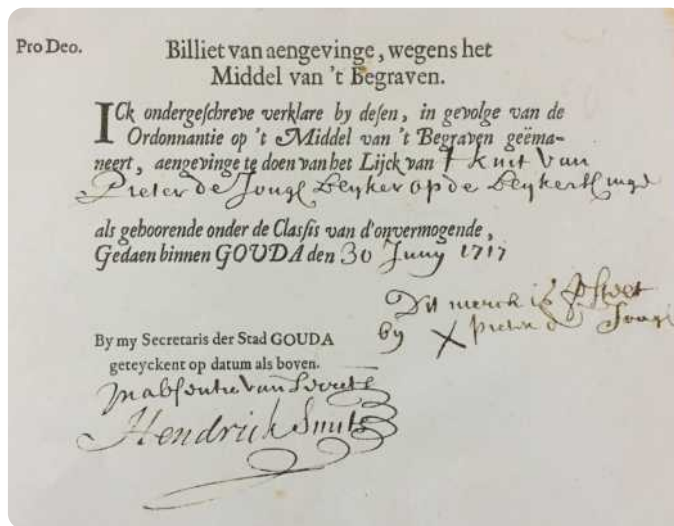 Pro Deo.
Billiet van aengevinge, wegens het
Middel van 't Begraven.
ICk ondergeschreve verklare by desen, in gevolge van de
Ordonnantie op 't Middel van 't Begraven geëma-
neert, aengevinge te doen van het Lijck van t kint van
Pieter de Jonge op de
als geboorende onder de Classis van d'onvermogende,
Gedaen binnen GOUDA den 30 Juny 1717
Dit merck is
by X Pieter d Jonge
By my Secretaris der Stad GOUDA
geteyckent op datum als boven.
In absentie van
Hendrick Smits